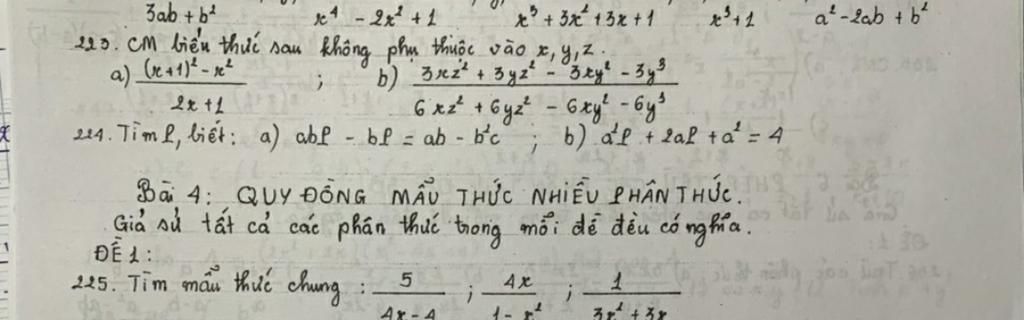 3ab + b² x⁴ - 2x² + 1 x³ + 3x² + 3x + 1 x³ + 1 a² - 2ab + b²
223. CM biểu thức sau không phụ thuộc vào x, y, z.
a) (x+1)² - x² / 2x + 1 ; b) 3xz² + 3yz² - 3xy² - 3y³ / 6xz² + 6yz² - 6xy² - 6y³
224. Tìm P, biết: a) abP - bP = ab - b²c ; b) a²P + 2aP + a² = 4
Bài 4: QUY ĐỒNG MẪU THỨC NHIỀU PHÂN THỨC.
Giả sử tất cả các phân thức trong mỗi đề đều có nghĩa.
ĐỀ 1:
225. Tìm mẫu thức chung : 5 / 4x - 4 ; 4x / 1 - x² ; 1 / 3x² + 3x